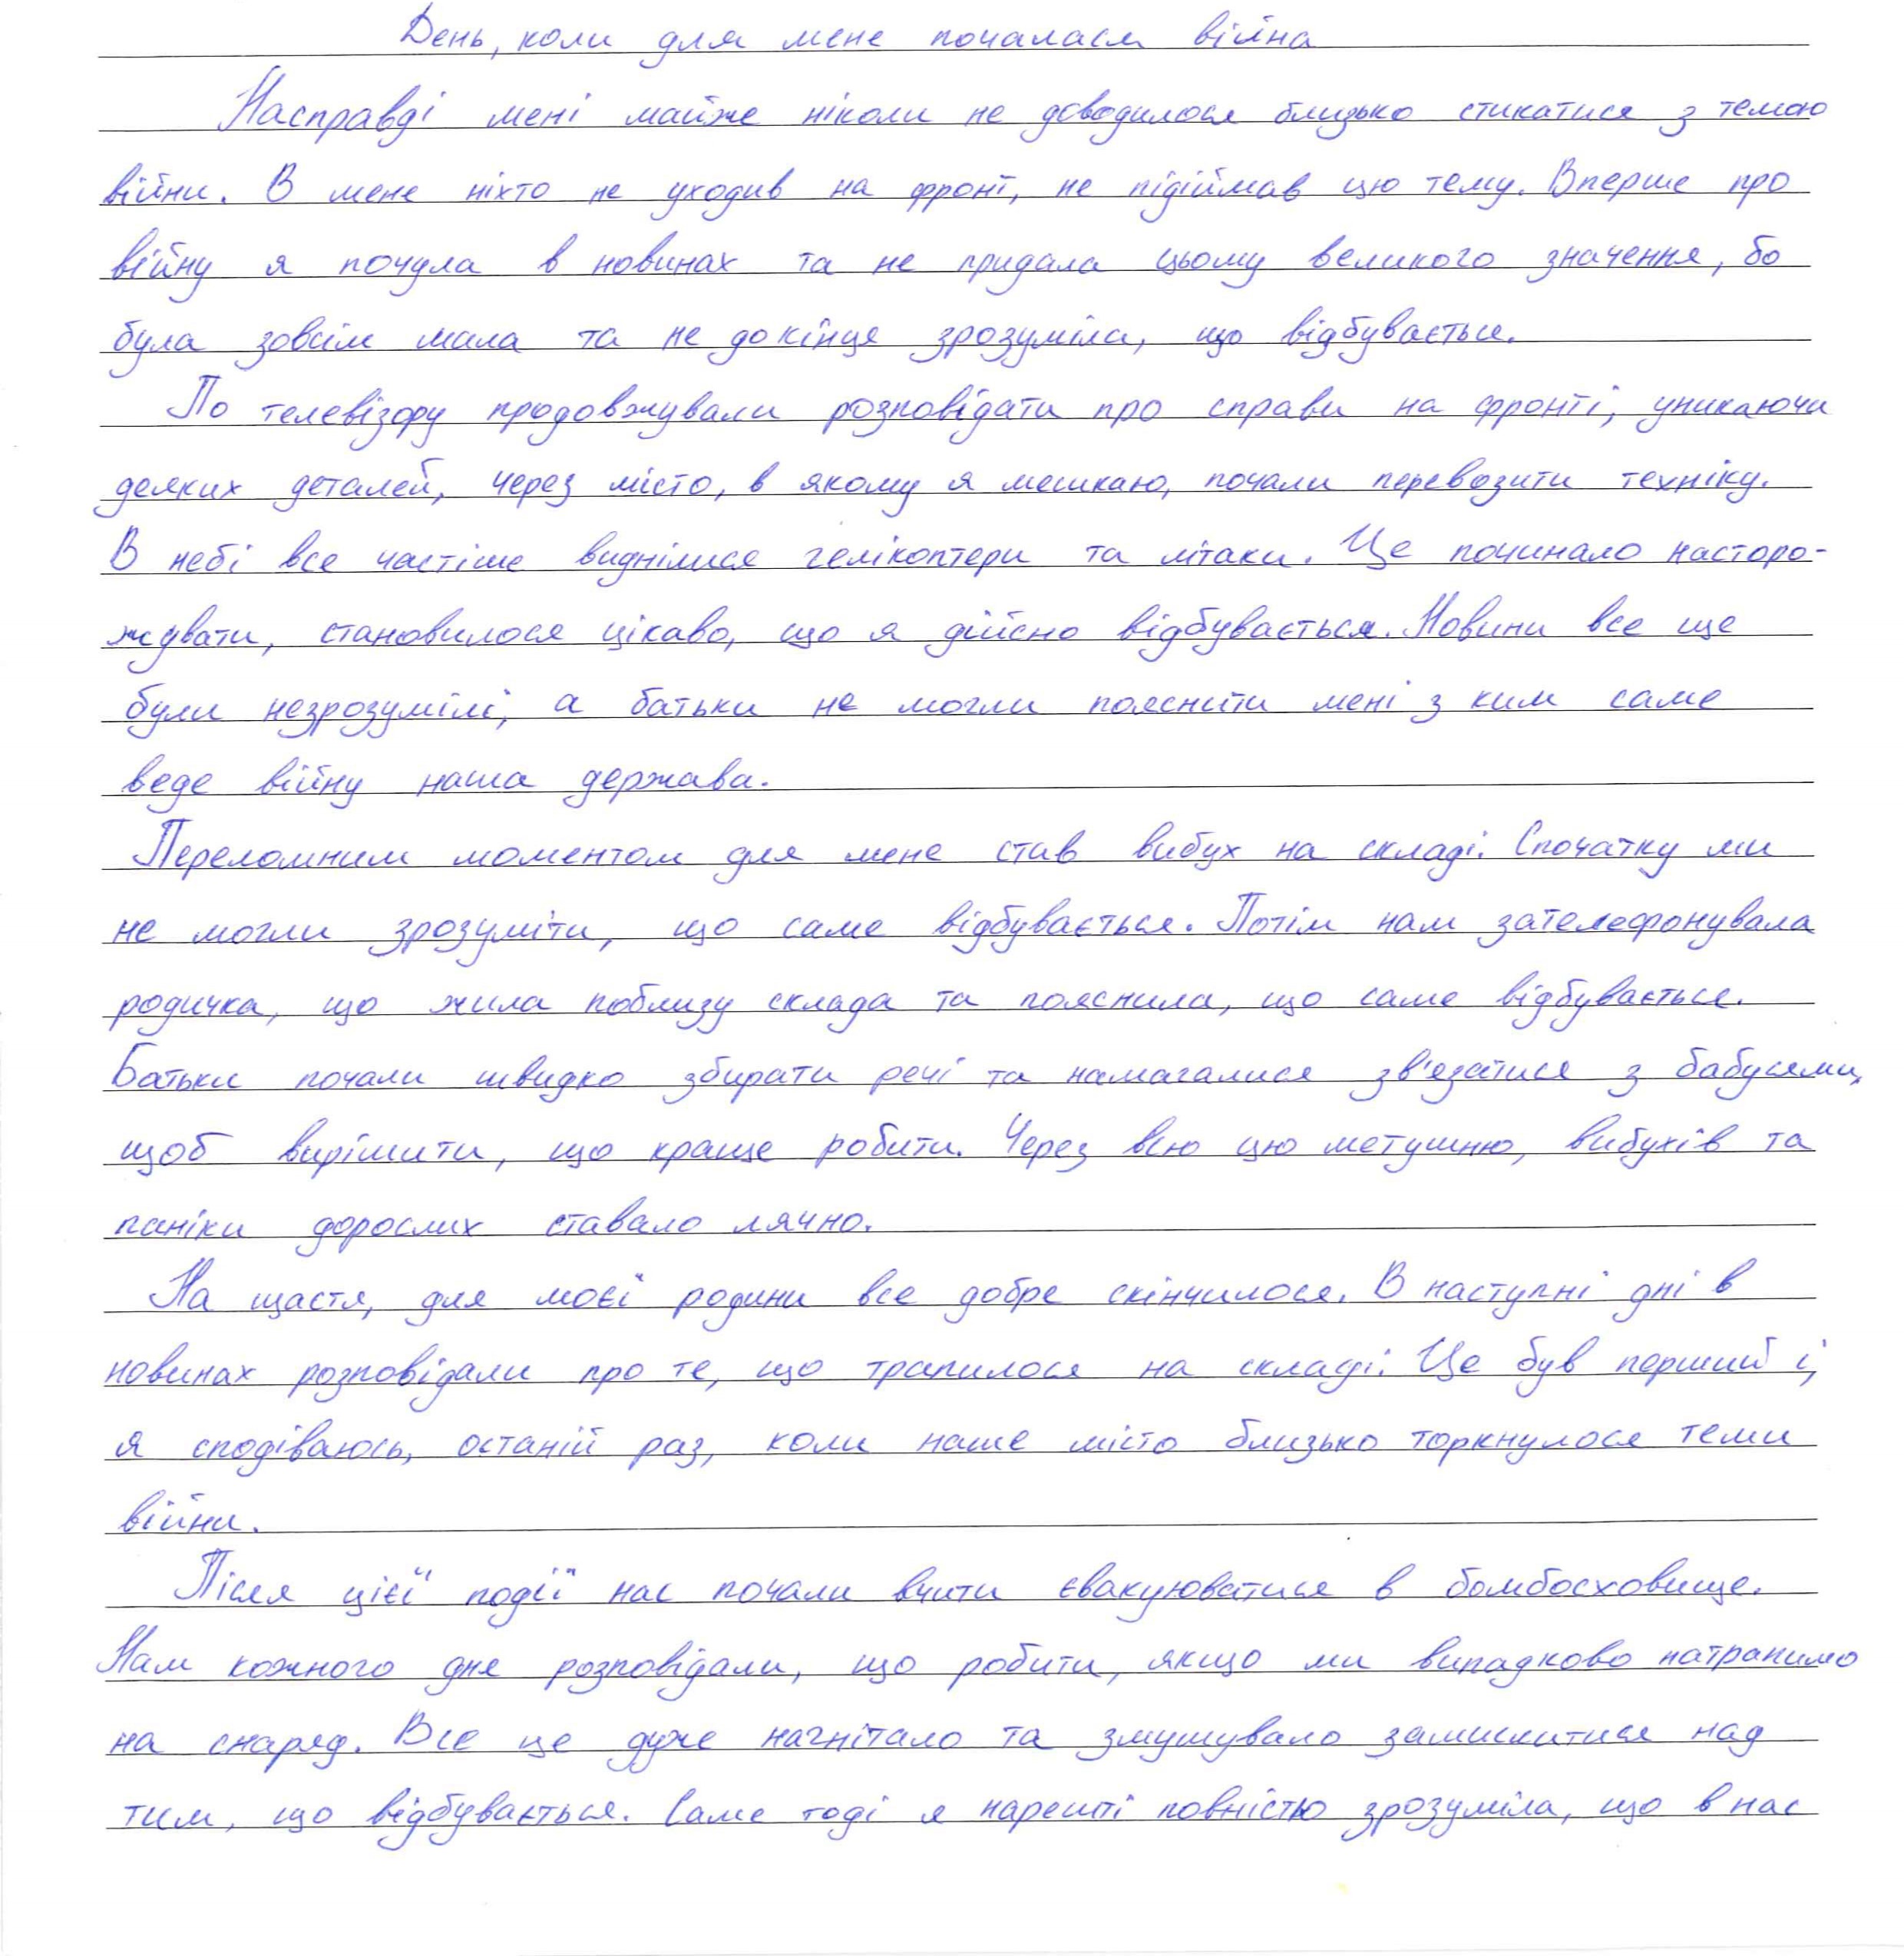 День, коли для мене почалася війна
Насправді мені майже ніколи не доводилося близько стикатися з темою
війни. В мене ніхто не уходив на фронт, не підіймав цю тему. Вперше про
війну я почула в новинах та не придала цьому великого значення, бо
була зовсім мала та не до кінця зрозуміла, що відбувається.
По телевізору продовжували розповідати про справи на фронті, уникаючи
деяких деталей, через місто, в якому я мешкаю, почали перевозити техніку.
В небі все частіше виднілися гелікоптери та літаки. Це починало насторо-
жувати, становилося цікаво, що я дійсно відбувається. Новини все ще
були незрозумілі, а батьки не могли пояснити мені з ким саме
веде війну наша держава.
Переломним моментом для мене став вибух на складі. Спочатку ми
не могли зрозуміти, що саме відбувається. Потім нам зателефонувала
родичка, що жила поблизу склада та пояснила, що саме відбувається.
Батьки почали швидко збирати речі та намагалися зв'язатися з бабусями,
щоб вирішити, що краще робити. Через всю цю метушню, вибухів та
паніки дорослих ставало лячно.
На щастя, для моєї родини все добре скінчилося. В наступні дні в
новинах розповідали про те, що трапилося на складі. Це був перший і,
я сподіваюсь, останій раз, коли наше місто близько торкнулося теми
війни.
Після цієї події нас почали вчити євакуюватися в бомбосховище.
Нам кожного дня розповідали, що робити, якщо ми випадково натрапимо
на снаряд. Все це дуже нагнітало та змушувало замислитися над
тим, що відбувається. Саме тоді я нарешті повністю зрозуміла, що в нас